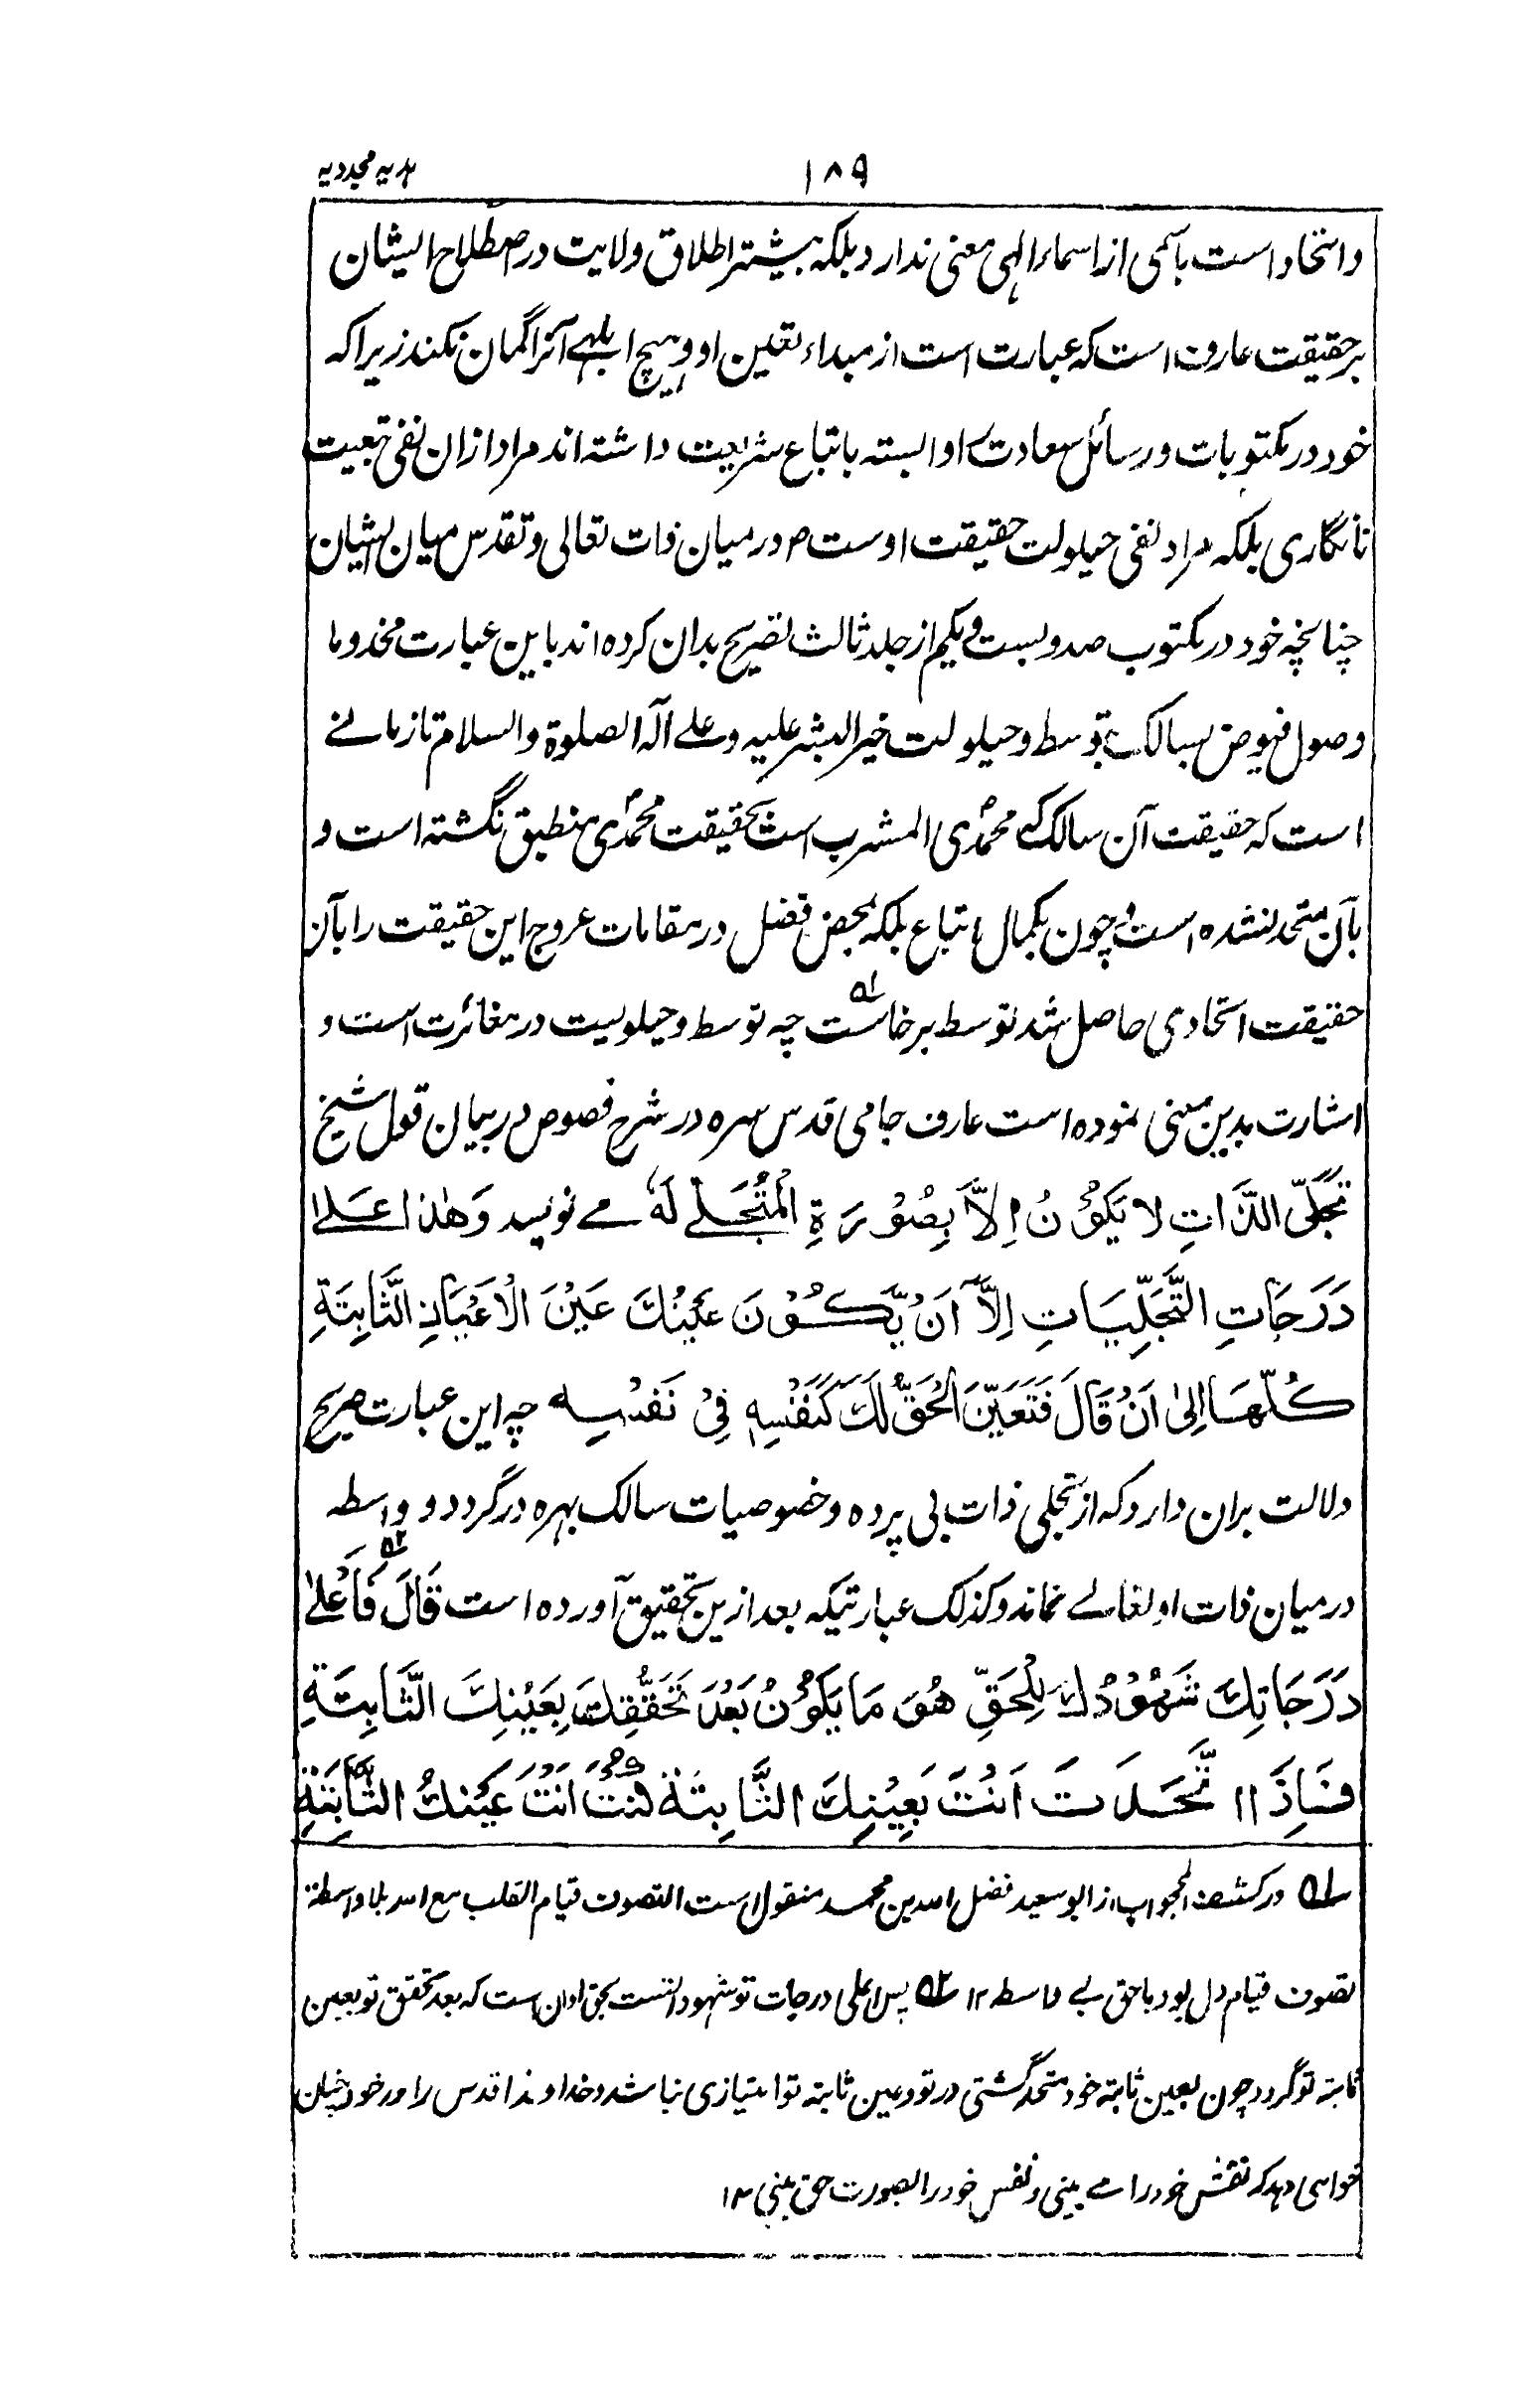 ۱۸۹ ہدیہ مجددیہ
و اتحاد است باسمی از اسماء الہی معنی ندارد بلکہ بیشتر اطلاق ولایت در اصطلاح ایشان
بر حقیقت عارف است کہ عبارت است از مبداء تعین او و ہیچ ابلہے آنرا گمان نکند زیرا کہ
خود در مکتوبات و رسائل سعادت را وابستہ باتباع شریعت داشتہ اند مراد ازان نفی تبعیت
نانگاری بلکہ مراد نفی حیلولت حقیقت اوست ص در میان ذات تعالی و تقدس میان ایشان
چنانچہ خود در مکتوب صد و بست و یکم از جلد ثالث تصریح بدان کردہ اند باین عبارت مخدوما
وصول فیوض بسالک بتوسط و حیلولت خیر البشر علیہ و علے آلہ الصلوۃ والسلام تا زمانے
است کہ حقیقت آن سالک کے محمدی المشرب است بحقیقت محمدی منطبق نگشتہ است و
بآن متحد نشدہ است و چون بکمال اتباع بلکہ بمحض فضل در مقامات عروج این حقیقت را بآن
حقیقت اتحادی حاصل شد توسط برخاست ۱ چہ توسط و حیلولیت در مغائرت است و
اشارت بدین معنی نمودہ است عارف جامی قدس سرہ در شرح فصوص در بیان قول شیخ
تَجَلِّی الذَّاتِ لا یَکُوْنُ اِلاَّ بِصُوْرَۃِ الْمُتَجَلّٰے لَہٗ مے نویسد وَھٰذا اَعْلےٰ
دَرَجَاتِ التَّجَلِّیَاتِ اِلاَّ اَنْ یَّکُوْنَ عَیْنُکَ عَیْنَ الْاَعْیَانِ الثَّابِتَۃِ
کُلِّھَا اِلیٰ اَنْ قَالَ فَتَعَیَّنَ الْحَقُّ لَکَ کَنَفْسِہٖ فِیْ نَفْسِہٖ چہ این عبارت صریح
دلالت بران دارد کہ از تجلی ذات بی پردہ و خصوصیات سالک بہرہ ور گردد و واسطہ
در میان ذات او تعالے نماند و کذلک عبارتیکہ بعد ازین تحقیق آوردہ است قَالَ ۲ فَاَعْلیٰ
دَرَجَاتِکَ شَھُوْدُکَ لِلْحَقِّ ھُوَ مَا یَکُوْنُ بَعْدَ تَحَقُّقِکَ بِعَیْنِکَ الثَّابِتَۃِ
فَاِذَا اتَّحَدَتَ اَنْتَ بَعِیْنِکَ الثَّابِتَۃ کُنْتَ اَنْتَ عَیْنُکَ الثَّابِتَۃِ
۱ در کشف المحجوب از ابو سعید فضل اللہ بن محمد منقول است التصوف قیام القلب مع اللہ بلا واسطۃ
تصوف قیام دل بود با حق بے واسطہ ۱۲ ۲ پس اعلی درجات تو شہود تست بحق او ان است کہ بعد تحقق تو بعین
ثابتہ تو گردد چون بعین ثابتہ خود متحد گشتی در تو و عین ثابتہ تو امتیازی نباشد و خداوند اقدس را در خود چنان
خواہی دید کہ نفس خود را مے بینی و نفس خود را بصورت حق بینی ۱۲